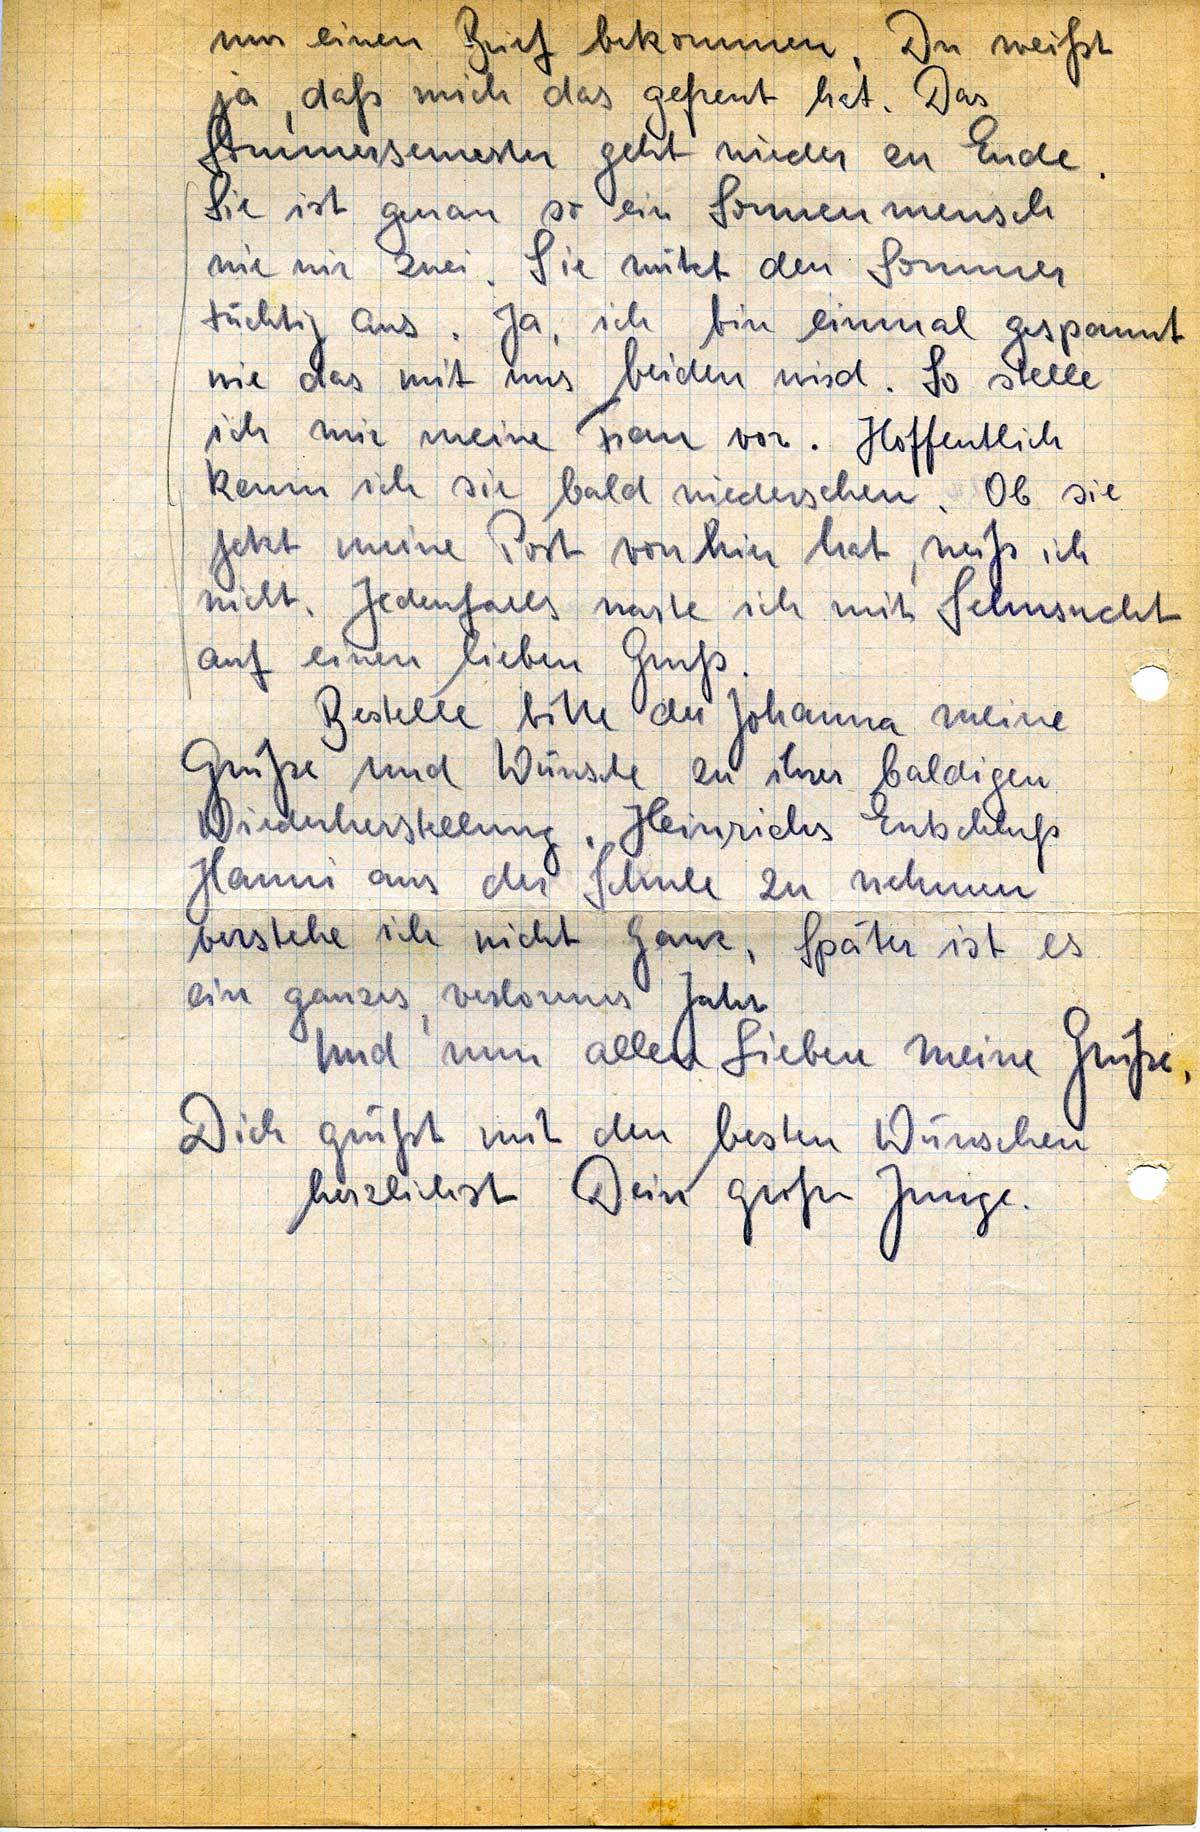 nur einen Brief bekommen. Du weißt
ja, daß mich das gefreut hat. Das
Sommersemester geht wieder zu Ende.
Sie ist genau so ein Sonnenmensch
wie wir zwei. Sie nützt den Sommer
tüchtig aus. Ja, ich bin einmal gespannt
wie das mit uns beiden wird. So stelle
ich mir meine Frau vor. Hoffentlich
kann ich sie bald wiedersehen. Ob sie
jetzt meine Post von hier hat, weiß ich
nicht. Jedenfalls warte ich mit Sehnsucht
auf einen lieben Gruß.
Bestelle bitte der Johanna meine
Grüße und Wünsche zu ihrer baldigen
Wiederherstellung. Heinrichs Entschluß
Hanni aus der Schule zu nehmen
verstehe ich nicht ganz. Später ist es
ein ganzes, verlorenes Jahr
Und nun allen Lieben meine Grüße,
Dich grüßt mit den besten Wünschen
herzlichst Dein großer Junge.